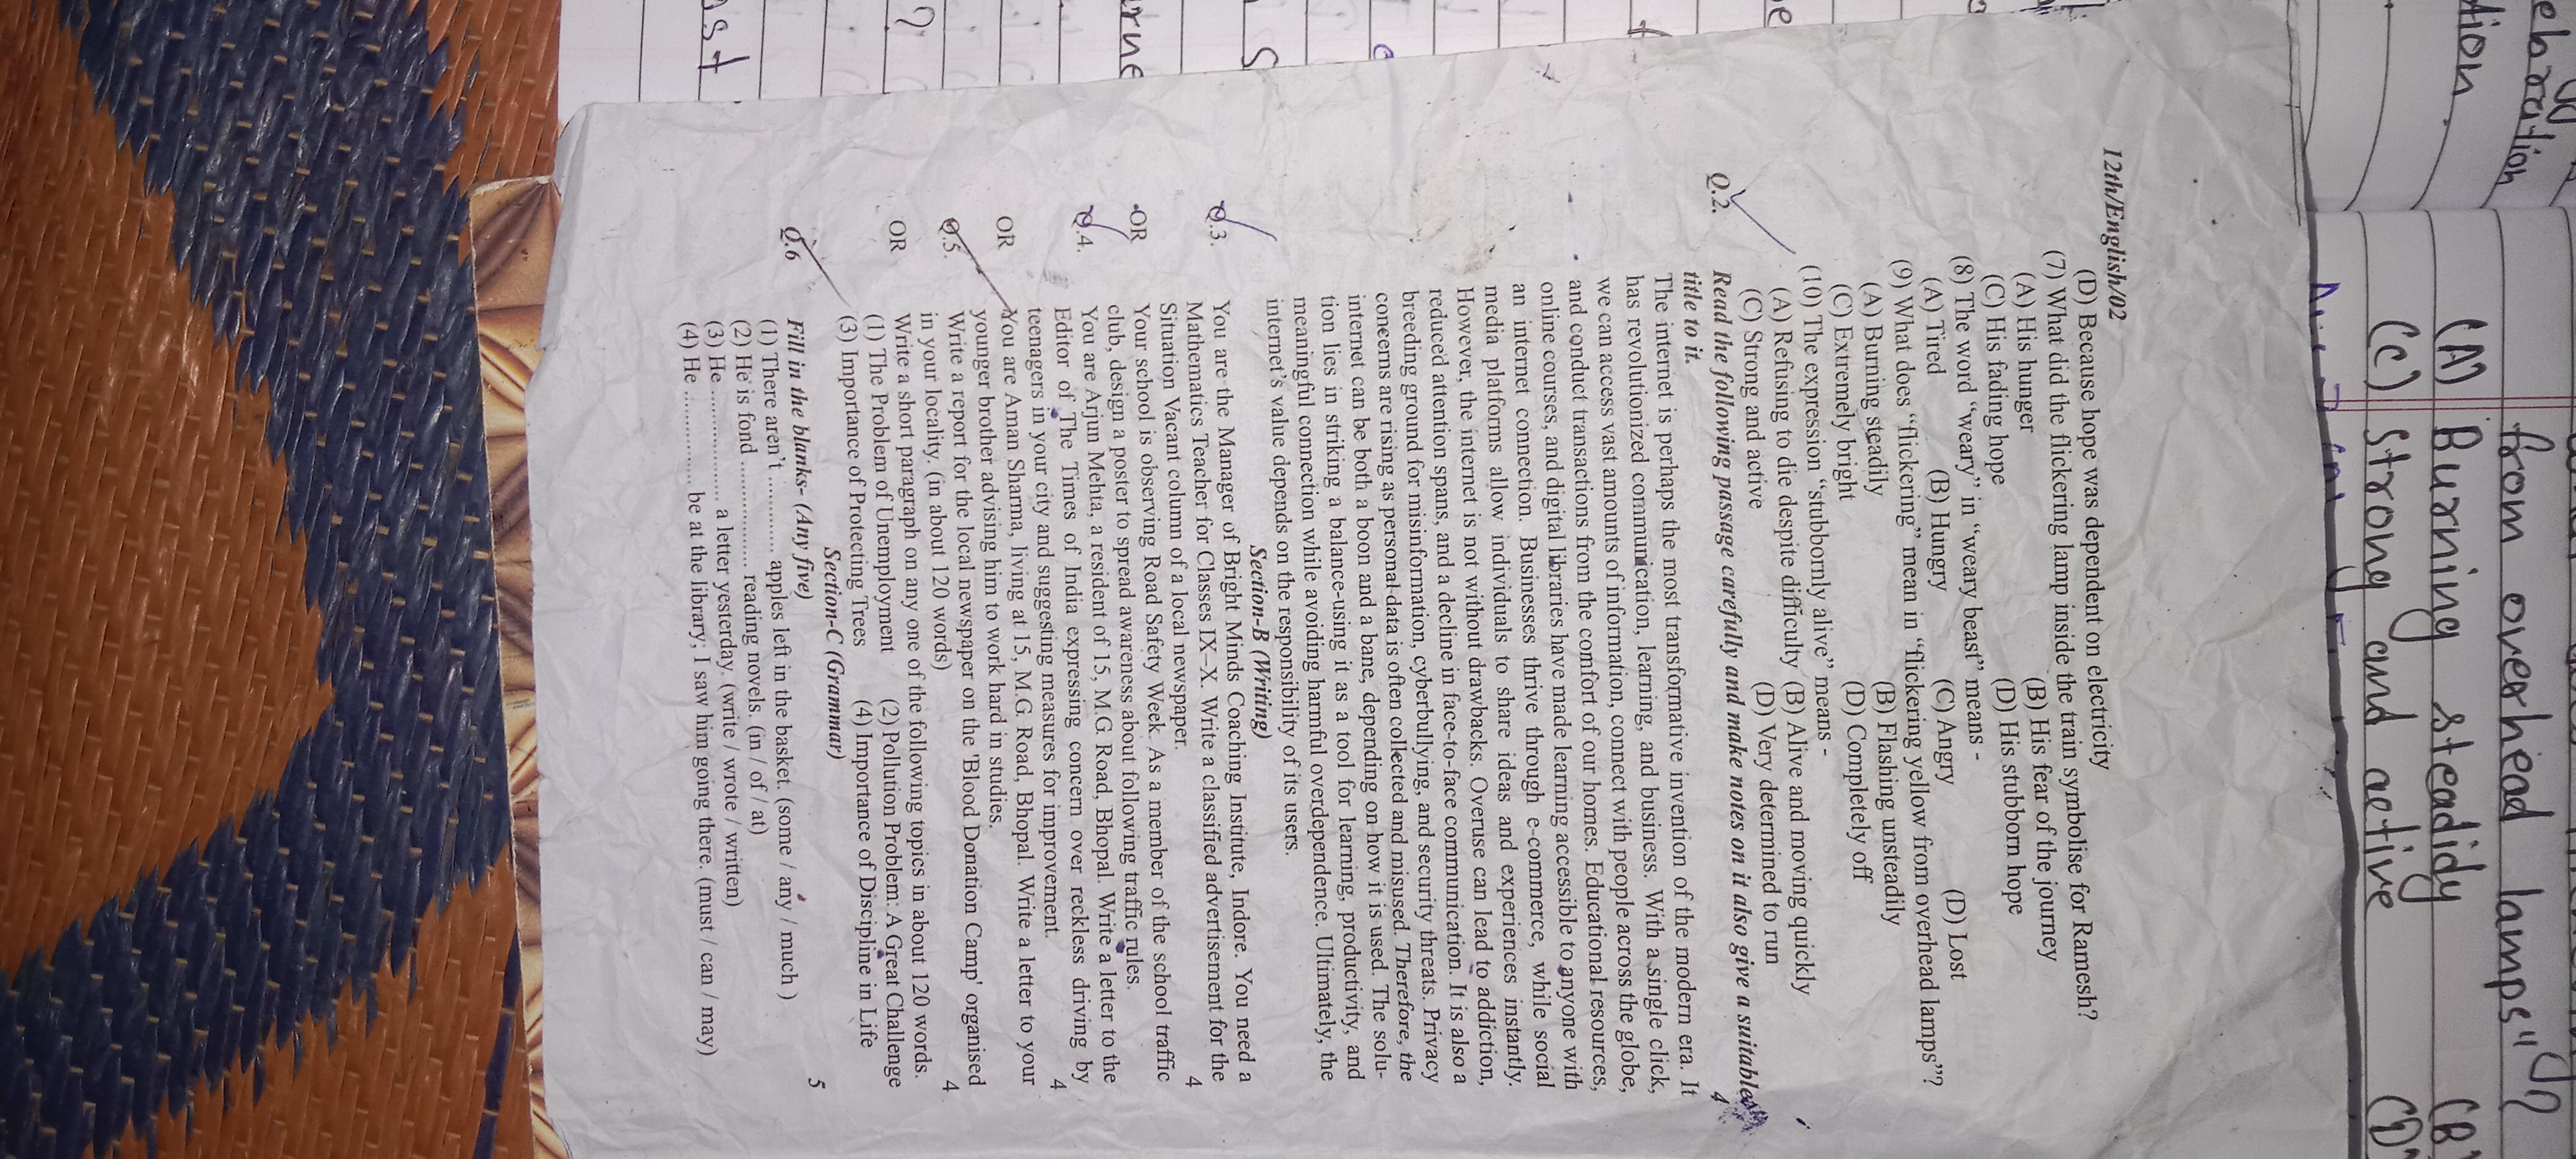 12th/English/02
(D) Because hope was dependent on electricity
(7) What did the flickering lamp inside the train symbolise for Ramesh?
(A) His hunger (B) His fear of the journey
(C) His fading hope (D) His stubborn hope
(8) The word "weary" in "weary beast" means -
(A) Tired (B) Hungry (C) Angry (D) Lost
(9) What does "flickering" mean in "flickering yellow from overhead lamps"?
(A) Burning steadily (B) Flashing unsteadily
(C) Extremely bright (D) Completely off
(10) The expression "stubbornly alive" means -
(A) Refusing to die despite difficulty (B) Alive and moving quickly
(C) Strong and active (D) Very determined to run
Q.2. Read the following passage carefully and make notes on it also give a suitable
title to it. 4
The internet is perhaps the most transformative invention of the modern era. It
has revolutionized communication, learning, and business. With a single click,
we can access vast amounts of information, connect with people across the globe,
and conduct transactions from the comfort of our homes. Educational resources,
online courses, and digital libraries have made learning accessible to anyone with
an internet connection. Businesses thrive through e-commerce, while social
media platforms allow individuals to share ideas and experiences instantly.
However, the internet is not without drawbacks. Overuse can lead to addiction,
reduced attention spans, and a decline in face-to-face communication. It is also a
breeding ground for misinformation, cyberbullying, and security threats. Privacy
concerns are rising as personal data is often collected and misused. Therefore, the
internet can be both a boon and a bane, depending on how it is used. The solu-
tion lies in striking a balance-using it as a tool for learning, productivity, and
meaningful connection while avoiding harmful overdependence. Ultimately, the
internet's value depends on the responsibility of its users.
Section-B (Writing)
Q.3. You are the Manager of Bright Minds Coaching Institute, Indore. You need a
Mathematics Teacher for Classes IX–X. Write a classified advertisement for the
Situation Vacant column of a local newspaper. 4
OR Your school is observing Road Safety Week. As a member of the school traffic
club, design a poster to spread awareness about following traffic rules.
Q.4. You are Arjun Mehta, a resident of 15, M.G. Road, Bhopal. Write a letter to the
Editor of The Times of India expressing concern over reckless driving by
teenagers in your city and suggesting measures for improvement. 4
OR You are Aman Sharma, living at 15, M.G. Road, Bhopal. Write a letter to your
younger brother advising him to work hard in studies.
Q.5. Write a report for the local newspaper on the 'Blood Donation Camp' organised
in your locality. (in about 120 words) 4
OR Write a short paragraph on any one of the following topics in about 120 words.
(1) The Problem of Unemployment (2) Pollution Problem: A Great Challenge
(3) Importance of Protecting Trees (4) Importance of Discipline in Life
Section-C (Grammar)
Q.6 Fill in the blanks- (Any five) 5
(1) There aren't ............... apples left in the basket. (some / any / much )
(2) He is fond ............... reading novels. (in / of / at)
(3) He ............... a letter yesterday. (write / wrote / written)
(4) He ............... be at the library; I saw him going there. (must / can / may)
from overhead lamps"
(A) Burning steadidy (B)
(C) strong and active (D)